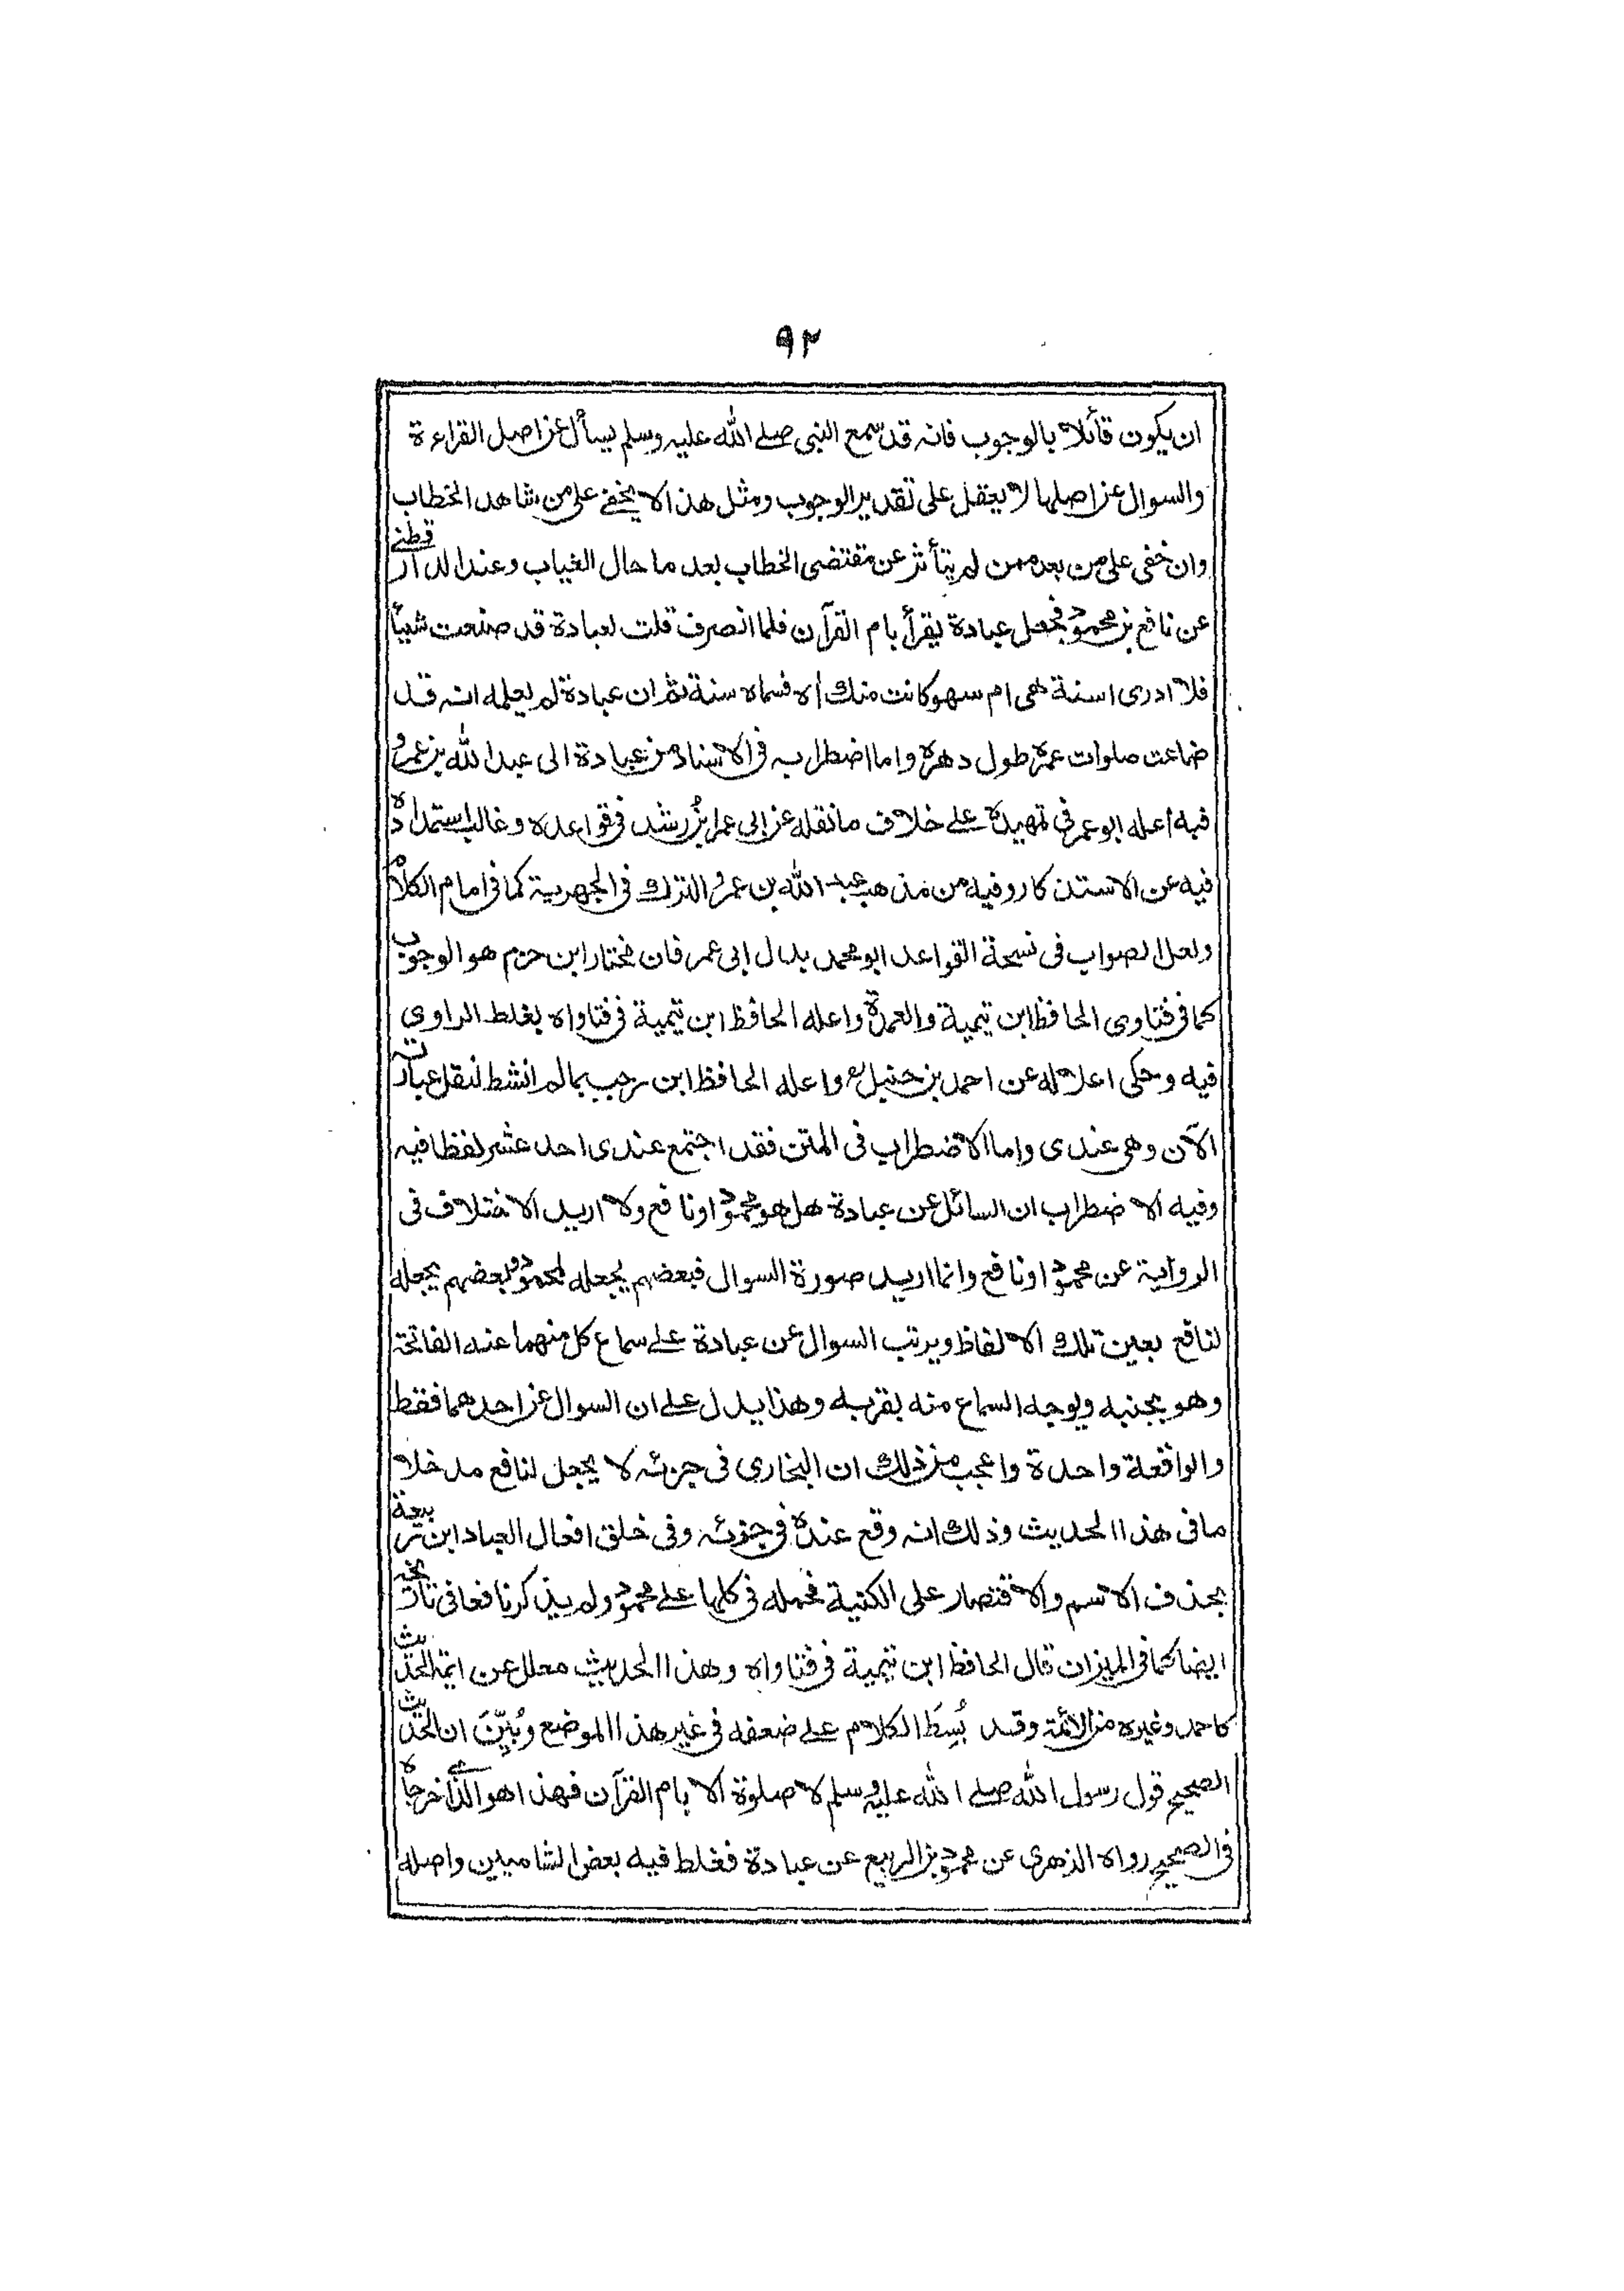 ٩٢
ان يكون قائلا بالوجوب فانه قد سمع النبى صلے الله عليه وسلم يسأل عن اصل القراءة
والسوال عن اصلها لا يعقل على تقدير الوجوب ومثل هذا لا يخفے على من شاهد الخطاب
وان خفى على من بعد ممن لم يتأثر عن مقتضى الخطاب بعد ما حال الغياب وعند الدارقطنے
عن نافع بن محمود فجعل عبادة يقرأ بام القرآن فلما انصرف قلت لعبادة قد صنعت شيأ
فلا ادرى اسنة هى ام سهو كانت منك اه فسماه سنة ثم ان عبادة لم يعلمه انه قد
ضاعت صلوات عمره طول دهره واما اضطرابه فى الاسناد من عبادة الى عبد الله بن عمرو
فبه اعله ابو عمر فى تمهيده علے خلاف ما نقله عن ابى عمر ابن رشد فى قواعده وغالب استمداده
فيه عن الاستذكار وفيه من مذهب عبد الله بن عمرو الترك فى الجهرية كما فى امام الكلام
ولعل الصواب فى نسخة القواعد ابو محمد بدل ابى عمر فان مختار ابن حزم هو الوجوب
كما فى فتاوى الحافظ ابن تيمية والعمدة واعله الحافظ ابن تيمية فى فتاواه بغلط الراوى
فيه وحكى اعلاله عن احمد بن حنبل واعله الحافظ ابن رجب بما لم انشط لنقل عبارته
الآن وهى عندى واما الاضطراب فى المتن فقد اجتمع عندى احد عشر لفظا فيه
وفيه الاضطراب ان السائل عن عبادة هل هو محمود او نافع ولا اريد الاختلاف فى
الرواية عن محمود او نافع وانما اريد صورة السوال فبعضهم يجعله لمحمود وبعضهم يجعله
لنافع بعين تلك الالفاظ ويرتب السوال عن عبادة علے سماع كل منهما عنه الفاتحة
وهو بجنبه ويوجه السماع منه بقربه وهذا يدل علے ان السوال عن احدهما فقط
والواقعة واحدة واعجب من ذلك ان البخارى فى جزئه لا يجعل لنافع مدخلا
ما فى هذا الحديث وذلك انه وقع عنده فى جزئه وفى خلق افعال العباد ابن ربيعة
بحذف الاسم والاقتصار على الكنية فحمله فى كلها علے محمود ولم يذكر نافعا فى تاريخه
ايضا كما فى الميزان قال الحافظ ابن تيمية فى فتاواه وهذا الحديث معلل عن ائمة الحديث
كاحمد وغيره من الائمة وقد بُسِطَ الكلام علے ضعفه فى غير هذا الموضع وبُيِّنَ ان الحديث
الصحيح قول رسول الله صلے الله عليه وسلم لا صلوة الا بام القرآن فهذا هو الذى اخرجاه
فى الصحيح رواه الزهرى عن محمود بن الربيع عن عبادة فغلط فيه بعض الشاميين واصله